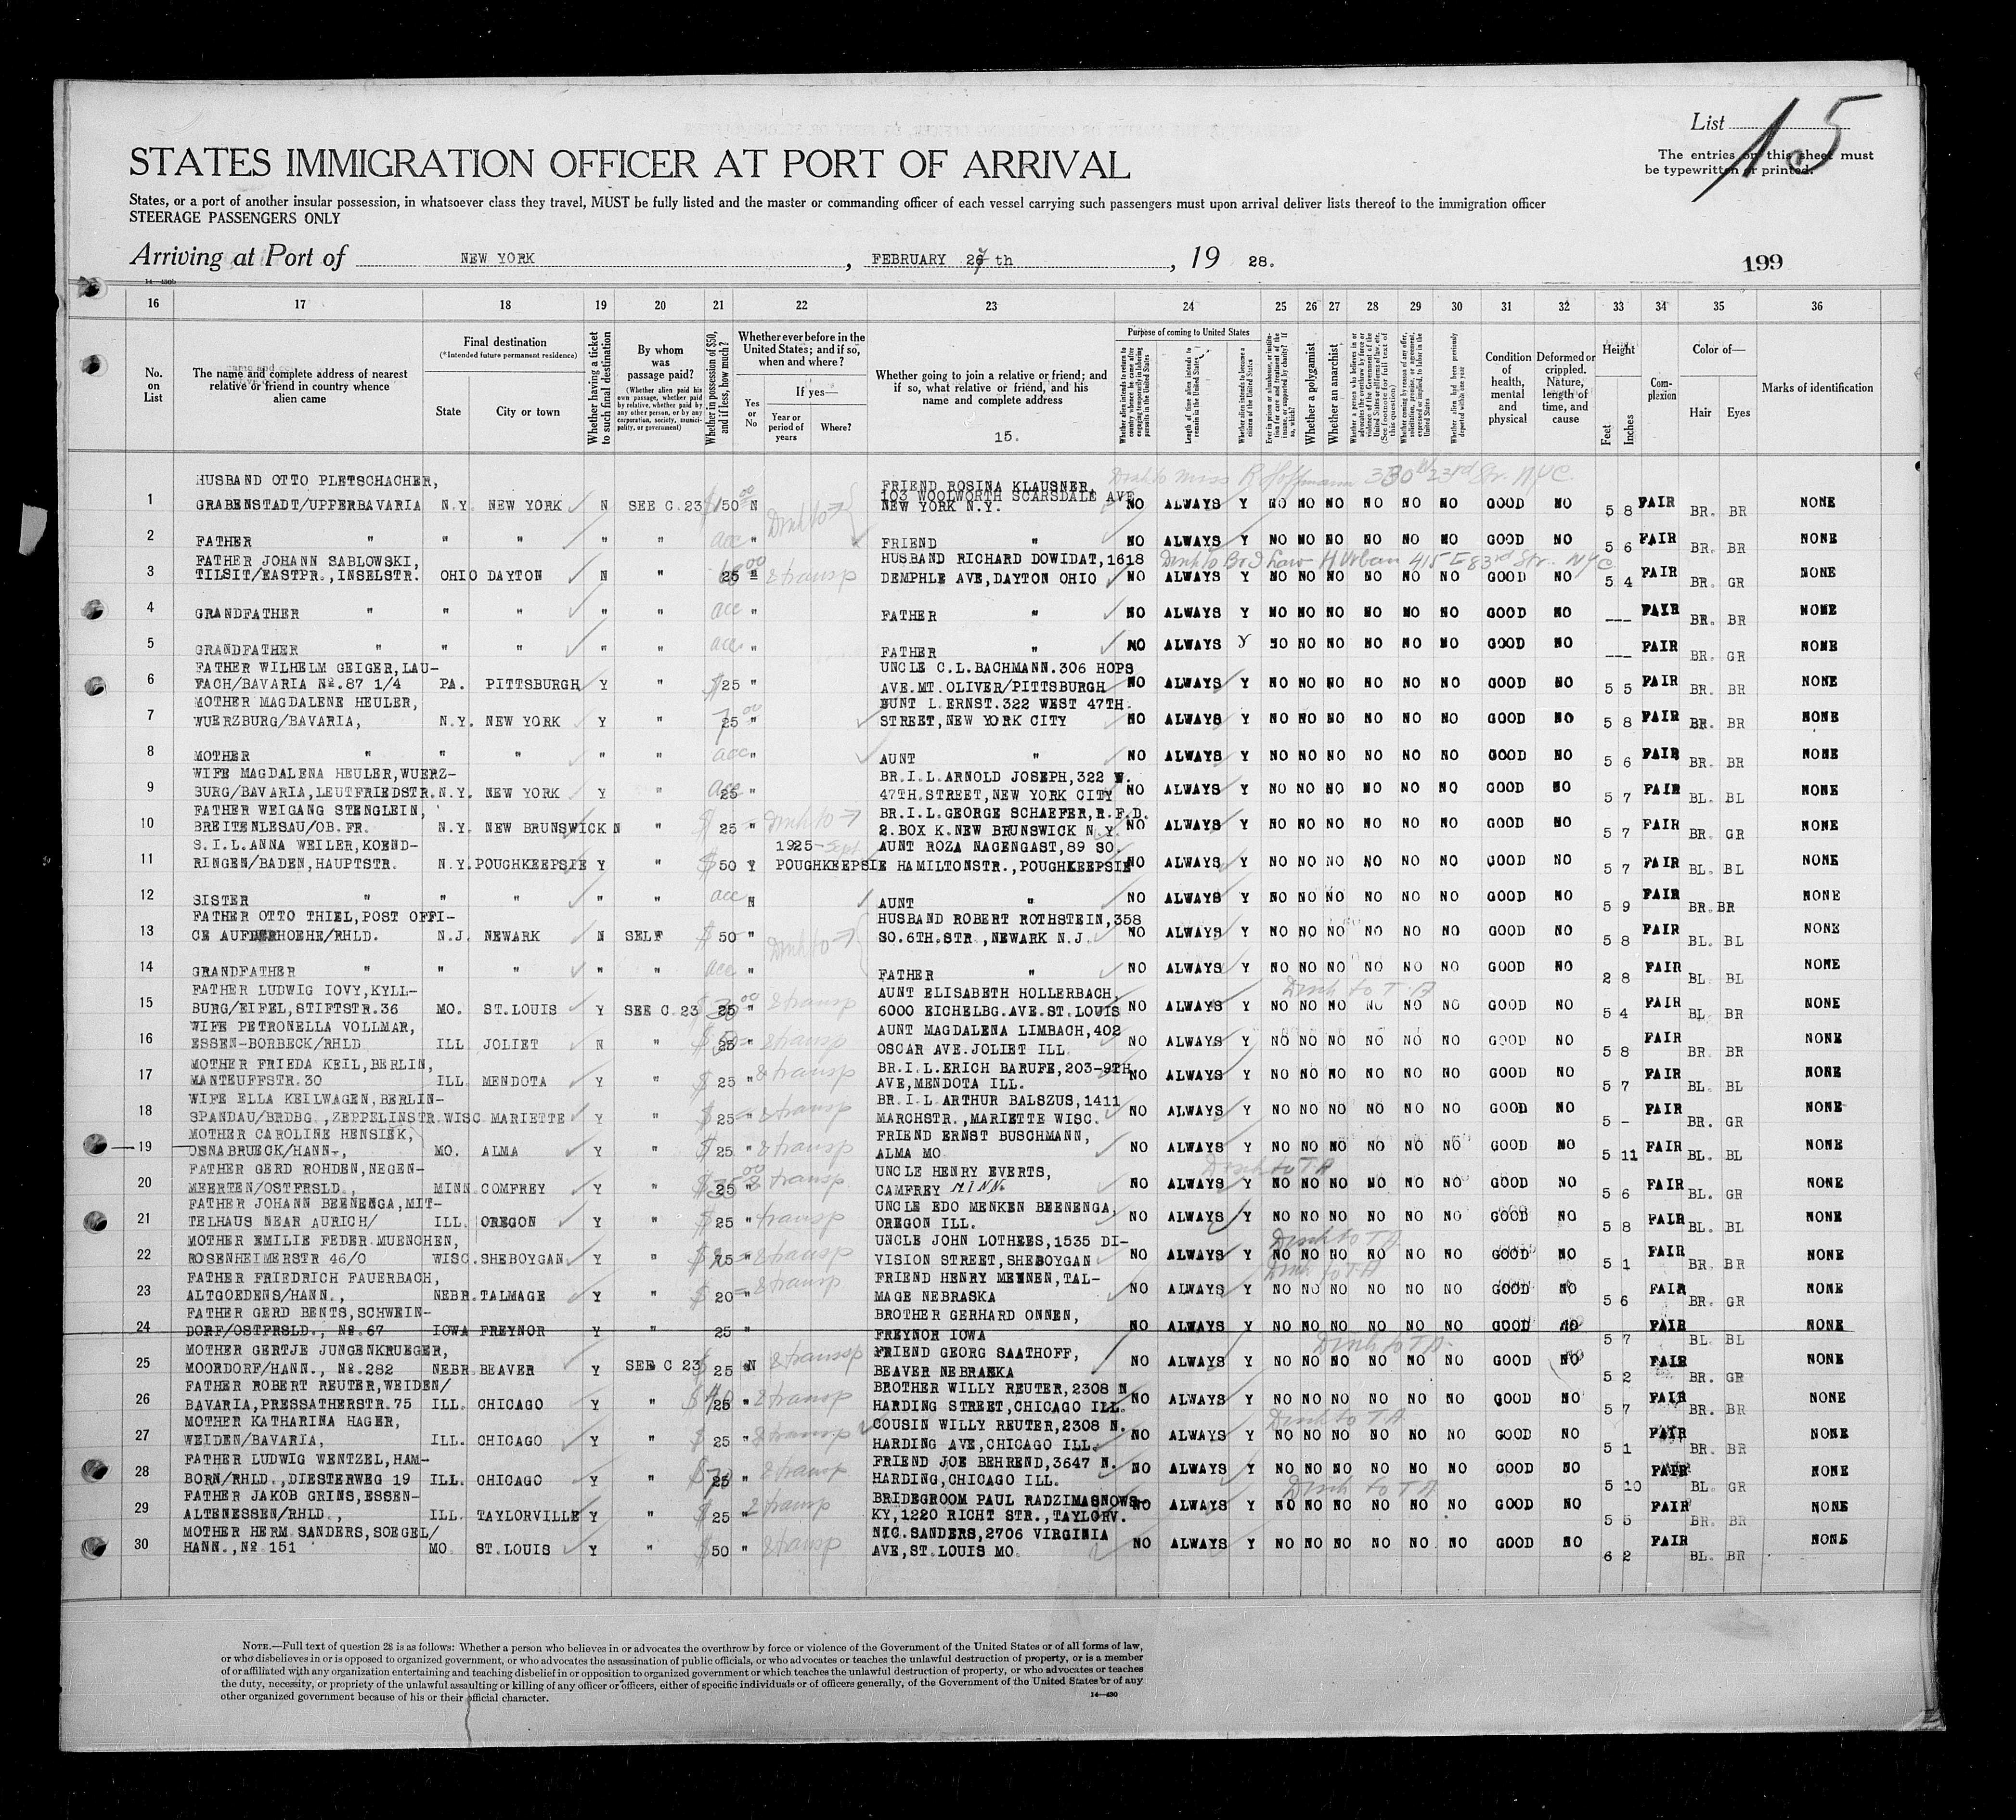 List 15
The entries on this sheet must
be typewritten or printed.
STATES IMMIGRATION OFFICER AT PORT OF ARRIVAL
States, or a port of another insular possession, in whatsoever class they travel, MUST be fully listed and the master or commanding officer of each vessel carrying such passengers must upon arrival deliver lists thereof to the immigration officer
STEERAGE PASSENGERS ONLY
Arriving at Port of NEW YORK, FEBRUARY 27 th, 19 28.
199
16 17 18 19 20 21 22 23 24 25 26 27 28 29 30 31 32 33 34 35 36
No. on List
The name and complete address of nearest relative or friend in country whence alien came
Final destination
(*Intended future permanent residence)
State
City or town
Whether having a ticket to such final destination
By whom was passage paid?
(Whether alien paid his own passage, whether paid by relative, whether paid by any other person, or by any corporation, society, municipality, or government)
Whether in possession of $50, and if less, how much?
Whether ever before in the United States; and if so, when and where?
Yes or No
If yes—
Year or period of years
Where?
Whether going to join a relative or friend; and if so, what relative or friend, and his name and complete address
15.
Purpose of coming to United States
Whether alien intends to return to country whence he came after engaging temporarily in laboring pursuits in the United States
Length of time alien intends to remain in the United States
Whether alien intends to become a citizen of the United States
Ever in prison or almshouse, or institution for care and treatment of the insane, or supported by charity? If so, which?
Whether a polygamist
Whether an anarchist
(See footnote for full text of this question)
Whether alien had been previously deported within one year
Condition of health, mental and physical
Deformed or crippled. Nature, length of time, and cause
Height
Feet
Inches
Complexion
Color of—
Hair
Eyes
Marks of identification
HUSBAND OTTO PLETSCHACHER, FRIEND ROSINA KLAUSNER,
103 WOOLWORTH SCARSDALE AVE
1 GRABENSTADT/UPPERBAVARIA N.Y. NEW YORK N SEE C.23 $150 N NEW YORK N.Y. NO ALWAYS Y NO NO NO NO NO NO GOOD NO 5 8 FAIR BR. BR NONE
2 FATHER " " " " " acc " FRIEND " NO ALWAYS Y NO NO NO NO NO NO GOOD NO 5 6 FAIR BR. BR NONE
FATHER JOHANN SABLOWSKI, HUSBAND RICHARD DOWIDAT,1618
3 TILSIT/EASTPR.,INSELSTR. OHIO DAYTON N " 25 " & transp DEMPHLE AVE,DAYTON OHIO NO ALWAYS Y NO NO NO NO NO NO GOOD NO 5 4 FAIR BR. GR NONE
4 GRANDFATHER " " " " " acc " FATHER " NO ALWAYS Y NO NO NO NO NO NO GOOD NO --- FAIR BR. BR NONE
5 GRANDFATHER " " " " " acc " FATHER " NO ALWAYS Y NO NO NO NO NO NO GOOD NO --- FAIR BR. GR NONE
FATHER WILHELM GEIGER,LAU- UNCLE C.L.BACHMANN.306 HOPS
6 FACH/BAVARIA No.87 1/4 PA. PITTSBURGH Y " $25 " AVE.MT.OLIVER/PITTSBURGH NO ALWAYS Y NO NO NO NO NO NO GOOD NO 5 5 FAIR BR. BR NONE
MOTHER MAGDALENE HEULER, AUNT L.ERNST.322 WEST 47TH.
7 WUERZBURG/BAVARIA, N.Y. NEW YORK Y " 25 " STREET,NEW YORK CITY NO ALWAYS Y NO NO NO NO NO NO GOOD NO 5 8 FAIR BR. BR NONE
8 MOTHER " " " " " acc " AUNT " NO ALWAYS Y NO NO NO NO NO NO GOOD NO 5 6 FAIR BR. BR NONE
WIFE MAGDALENA HEULER,WUERZ- BR.I.L.ARNOLD JOSEPH,322 W.
9 BURG/BAVARIA,LEUTFRIEDSTR. N.Y. NEW YORK Y " 25 " 47TH.STREET,NEW YORK CITY NO ALWAYS Y NO NO NO NO NO NO GOOD NO 5 7 FAIR BL. BL NONE
FATHER WEIGANG STENGLEIN, BR.I.L.GEORGE SCHAEFER,R.F.D.
10 BREITENLESAU/OB.FR. N.Y. NEW BRUNSWICK N " $25 " 2.BOX K.NEW BRUNSWICK N.Y. NO ALWAYS Y NO NO NO NO NO NO GOOD NO 5 7 FAIR BR. GR NONE
S.I.L.ANNA WEILER,KOEND- 1925- Sept AUNT ROZA NAGENGAST,89 SO.
11 RINGEN/BADEN,HAUPTSTR. N.Y. POUGHKEEPSIE Y " $50 Y POUGHKEEPSIE HAMILTONSTR.,POUGHKEEPSIE NO ALWAYS Y NO NO NO NO NO NO GOOD NO 5 7 FAIR BL. BL NONE
12 SISTER " " " " " acc N AUNT " NO ALWAYS Y NO NO NO NO NO NO GOOD NO 5 9 FAIR BR.BR NONE
FATHER OTTO THIEL,POST OFFI- HUSBAND ROBERT ROTHSTEIN,358
13 CE AUFDERHOEHE/RHLD. N.J. NEWARK N SELF $50 " SO.6TH.STR.,NEWARK N.J. NO ALWAYS Y NO NO NO NO NO NO GOOD NO 5 8 FAIR BL. BL NONE
14 GRANDFATHER " " " " " acc " FATHER " NO ALWAYS Y NO NO NO NO NO NO GOOD NO 2 8 FAIR BL. BL NONE
FATHER LUDWIG IOVY,KYLL- AUNT ELISABETH HOLLERBACH,
15 BURG/EIFEL,STIFTSTR.36 MO. ST.LOUIS Y SEE C.23 25 " & transp 6000 EICHELBG.AVE.ST.LOUIS NO ALWAYS Y NO NO NO NO NO NO GOOD NO 5 4 FAIR BL. BR NONE
WIFE PETRONELLA VOLLMAR, AUNT MAGDALENA LIMBACH,402
16 ESSEN-BORBECK/RHLD ILL JOLIET N " 25 " & transp OSCAR AVE.JOLIET ILL NO ALWAYS Y NO NO NO NO NO NO GOOD NO 5 8 FAIR BR. BR NONE
MOTHER FRIEDA KEIL,BERLIN, BR.I.L.ERICH BARUFE,203-9TH
17 MANTEUFFSTR.30 ILL MENDOTA Y " $25 " & transp AVE,MENDOTA ILL. NO ALWAYS Y NO NO NO NO NO NO GOOD NO 5 7 FAIR BL. BL NONE
WIFE ELLA KEILWAGEN,BERLIN- BR.I.L ARTHUR BALSZUS,1411
18 SPANDAU/BRDBG.,ZEPPELINSTR. WISC MARIETTE Y " $25 " & transp MARCHSTR.,MARIETTE WISC. NO ALWAYS Y NO NO NO NO NO NO GOOD NO 5 - FAIR BR. GR NONE
MOTHER CAROLINE HENSIEK, FRIEND ERNST BUSCHMANN,
19 OSNABRUECK/HANN., MO. ALMA Y " $25 " & transp ALMA MO NO ALWAYS Y NO NO NO NO NO NO GOOD NO 5 11 FAIR BL. BL NONE
FATHER GERD ROHDEN,NEGEN- UNCLE HENRY EVERTS,
20 MEERTEN/OSTFRSLD., MINN COMFREY Y " 25 " & transp CAMFREY MINN. NO ALWAYS Y NO NO NO NO NO NO GOOD NO 5 6 FAIR BL. GR NONE
FATHER JOHANN BEENENGA,MIT- UNCLE EDO MENKEN BEENENGA,
21 TELHAUS NEAR AURICH/ ILL. OREGON Y " $25 " transp OREGON ILL. NO ALWAYS Y NO NO NO NO NO NO GOOD NO 5 8 FAIR BL. BL NONE
MOTHER EMILIE FEDER MUENCHEN, UNCLE JOHN LOTHEES,1535 DI-
22 ROSENHEIMERSTR 46/0 WISC. SHEBOYGAN Y " 25 " & transp VISION STREET,SHEBOYGAN NO ALWAYS Y NO NO NO NO NO NO GOOD NO 5 1 FAIR BR. BR NONE
FATHER FRIEDRICH FAUERBACH, FRIEND HENRY MENNEN,TAL-
23 ALTGOEDENS/HANN., NEBR. TALMAGE Y " $20 " & transp MAGE NEBRASKA NO ALWAYS Y NO NO NO NO NO NO GOOD NO 5 6 FAIR BR. GR NONE
FATHER GERD BENTS,SCHWEIN- BROTHER GERHARD ONNEN,
24 DORF/OSTFRSLD., No.67 IOWA FREYNOR Y " 25 " FREYNOR IOWA NO ALWAYS Y NO NO NO NO NO NO GOOD NO 5 7 FAIR BL. BL NONE
MOTHER GERTJE JUNGENKRUEGER, FRIEND GEORG SAATHOFF,
25 MOORDORF/HANN., No.282 NEBR. BEAVER Y SEE C 23 25 N & transp BEAVER NEBRASKA NO ALWAYS Y NO NO NO NO NO NO GOOD NO 5 2 FAIR BR. GR NONE
FATHER ROBERT REUTER,WEIDEN/ BROTHER WILLY REUTER,2308 N
26 BAVARIA,PRESSATHERSTR.75 ILL. CHICAGO Y " 25 " & transp HARDING STREET,CHICAGO ILL. NO ALWAYS Y NO NO NO NO NO NO GOOD NO 5 7 FAIR BR. BR NONE
MOTHER KATHARINA HAGER, COUSIN WILLY REUTER,2308 N.
27 WEIDEN/BAVARIA, ILL. CHICAGO Y " $25 " & transp HARDING AVE,CHICAGO ILL. NO ALWAYS Y NO NO NO NO NO NO GOOD NO 5 1 FAIR BR. BR NONE
FATHER LUDWIG WENTZEL,HAM- FRIEND JOE BEHREND,3647 N.
28 BORN/RHLD.,DIESTERWEG 19 ILL. CHICAGO Y " 25 " & transp HARDING,CHICAGO ILL. NO ALWAYS Y NO NO NO NO NO NO GOOD NO 5 10 FAIR BL. GR NONE
FATHER JAKOB GRINS,ESSEN- BRIDEGROOM PAUL RADZIMASNOWS-
29 ALTENESSEN/RHLD., ILL. TAYLORVILLE Y " $25 " & transp KY,1220 RICHT STR.,TAYLORV. NO ALWAYS Y NO NO NO NO NO NO GOOD NO 5 5 FAIR BR. BR NONE
MOTHER HERM SANDERS,SOEGEL/ NIC.SANDERS,2706 VIRGINIA
30 HANN.,No 151 MO. ST.LOUIS Y " $50 " & transp AVE,ST.LOUIS MO. NO ALWAYS Y NO NO NO NO NO NO GOOD NO 6 2 FAIR BL. BR NONE
NOTE.—Full text of question 28 is as follows: Whether a person who believes in or advocates the overthrow by force or violence of the Government of the United States or of all forms of law,
or who disbelieves in or is opposed to organized government, or who advocates the assassination of public officials, or who advocates or teaches the unlawful destruction of property, or is a member
of or affiliated with any organization entertaining and teaching disbelief in or opposition to organized government or which teaches the unlawful destruction of property, or who advocates or teaches
the duty, necessity, or propriety of the unlawful assaulting or killing of any officer or officers, either of specific individuals or of officers generally, of the Government of the United States or of any
other organized government because of his or their official character.
14—430